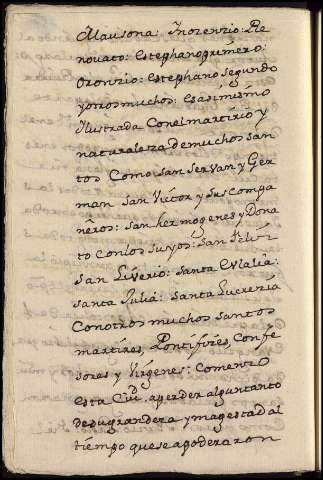 Mausona: Inozenzio Re
nouato: estephano primero:
Oronzio: estephano segundo
y otros muchos: es asimismo
Ilustrada Con el martirio y
naturaleza de muchos san
tos Como san seruan y Ger
man san Victor y sus Compa
ñeros: san hermogenes y Dona
to con los suyos: san felix:
san Liverio: santa eulalia:
santa Julia: santa Lucrezia
Con otros muchos santos
martires, Pontifizes, Confe
sores y Virgenes: Comenzo
esta Ciud. a perder algun tanto
de su grandeza y magestad al
tiempo que se apoderaron